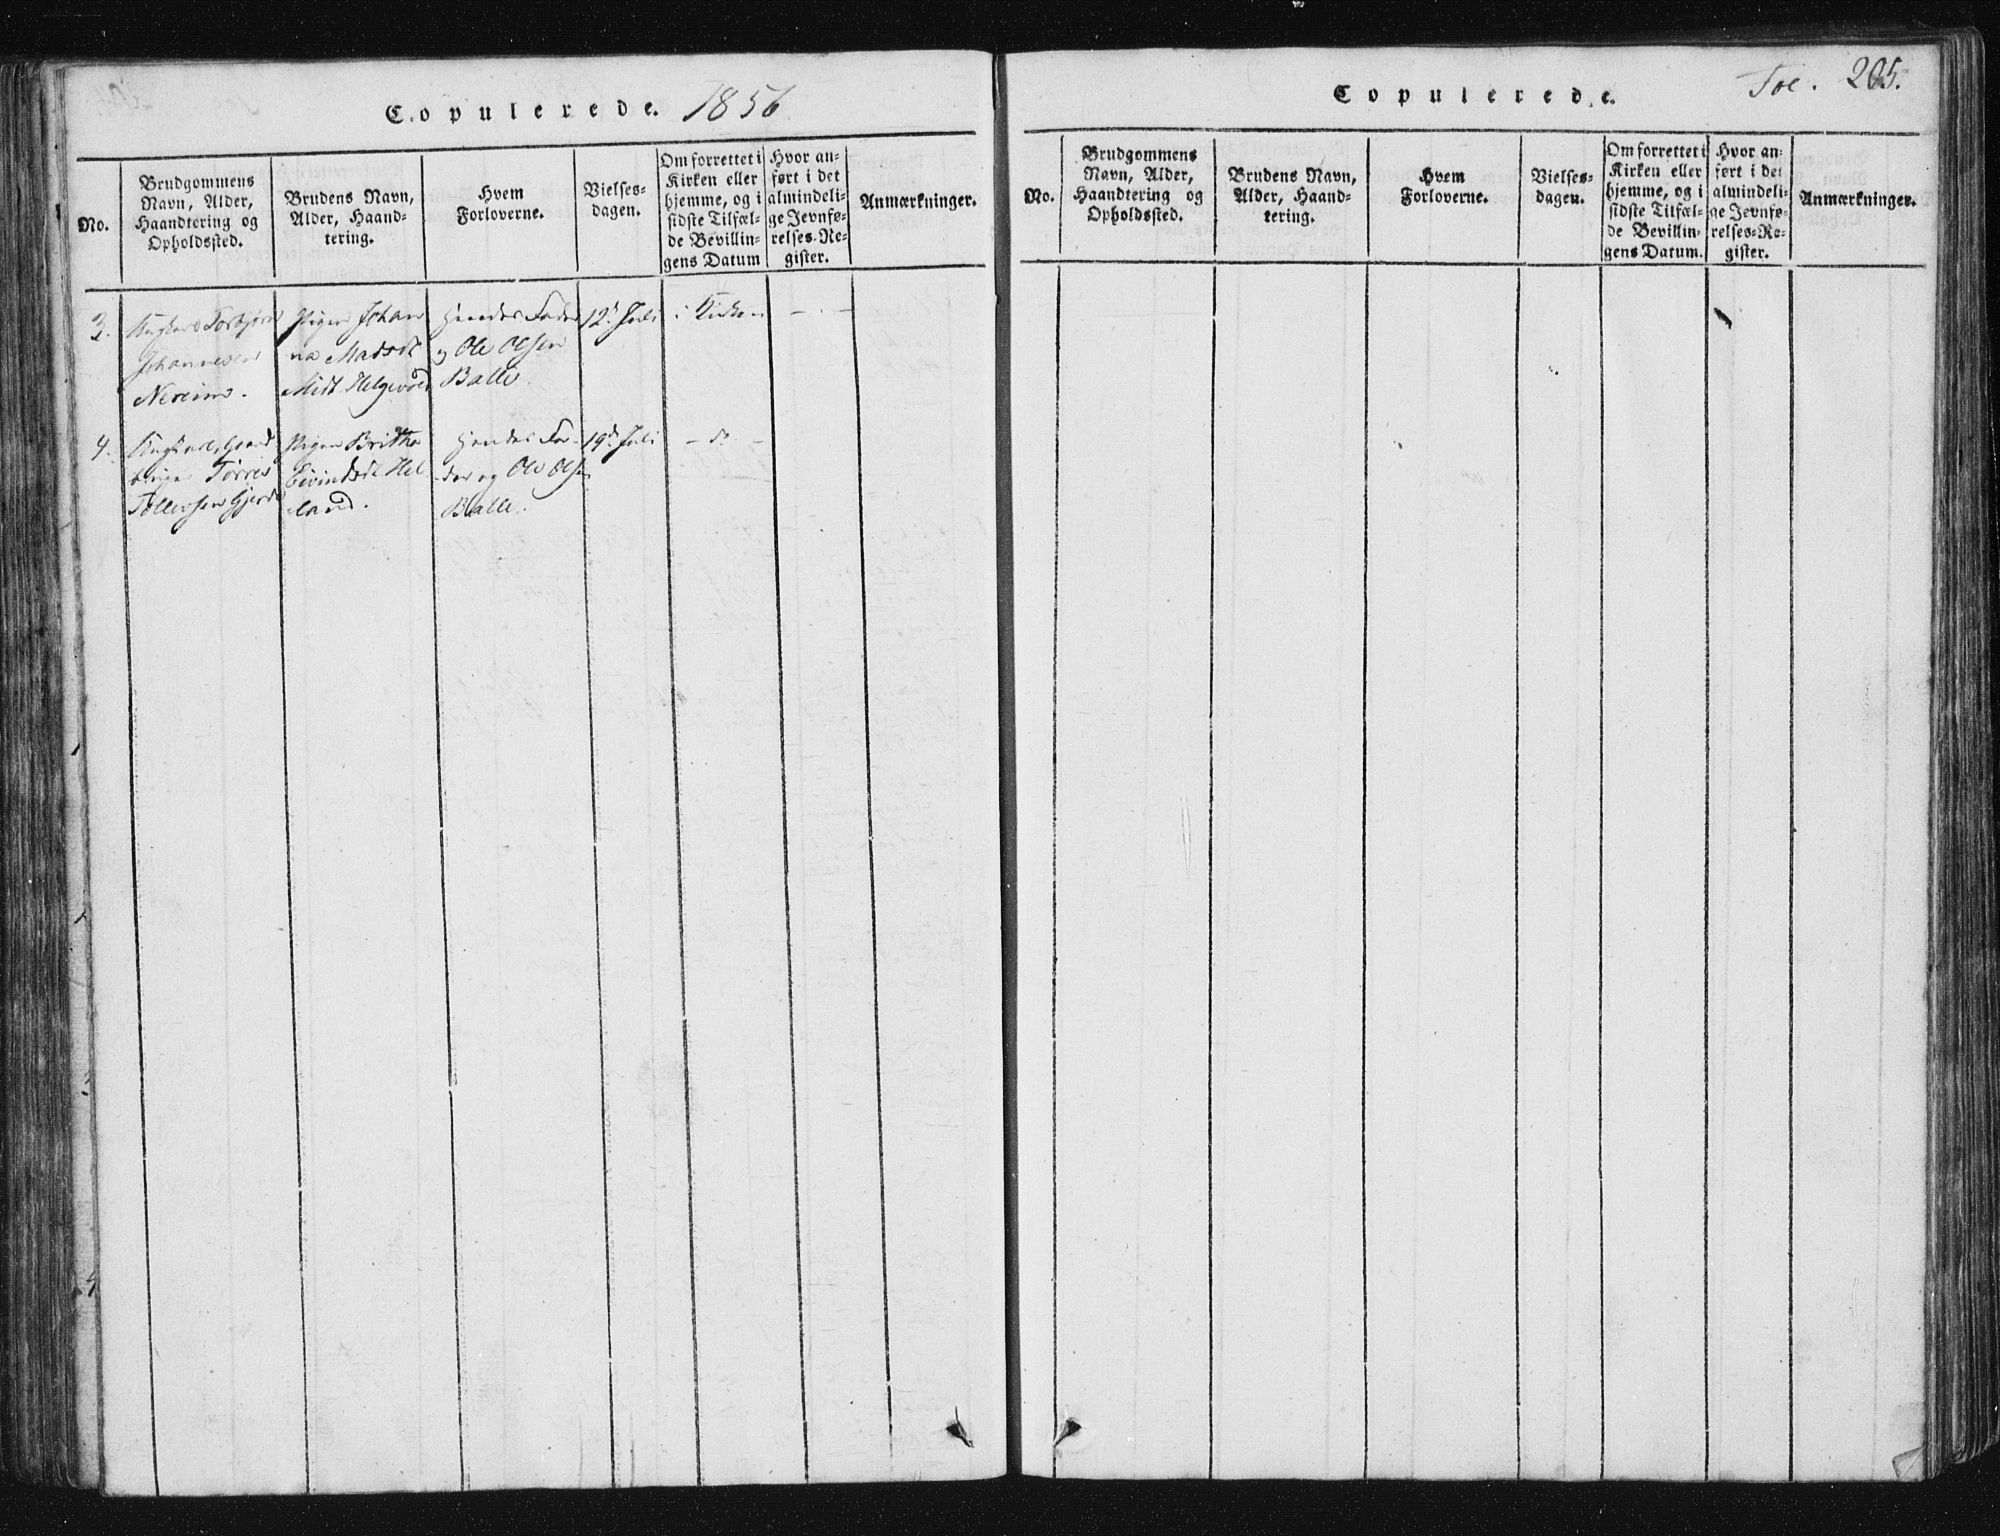 Copulerede. 1856
No.
Brudgommens
Navn, Alder,
Haandtering og
Opholdssted.
Brudens Navn,
Alder, Haand-
tering.
Hvem
Forloverne.
Vielses-
dagen.
Om forrettet i
Kirken eller
hjemme, og i
sidste Tilfæl-
de Bevillin-
gens Datum
Hvor an-
ført i det
almindeli-
ge Jevnfø-
relses-Re-
gister.
Anmærkninger.
3.
Ungkarl Torbjørn
Johannesen
Nereim.
Pigen Johan
na Madsdt
Midt Helgevold
Hendes Fader
og Ole Olsen
Balle.
12t Juli
i Kirken
4.
Tørres
Tollevsen Gjerde
Pigen Britha
Eivindsdt Hel
land.
Hendes Fa-
der og Ole Olsen
Balle.
19d Juli
- do -
Copulerede.
Foe. 205.
No.
Brudgommens
Navn, Alder,
Haandtering og
Opholdssted.
Brudens Navn,
Alder, Haand-
tering.
Hvem
Forloverne.
Vielses-
dagen.
Om forrettet i
Kirken eller
hjemme, og i
sidste Tilfæl-
de Bevillin-
gens Datum.
Hvor an-
ført i det
almindeli-
ge Jevnfø-
relses-Re-
gister.
Anmærkninger.